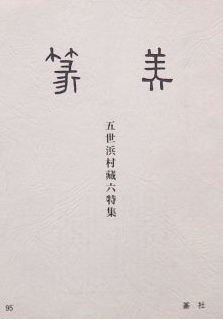 篆美
五世浜村藏六特集
95
篆社